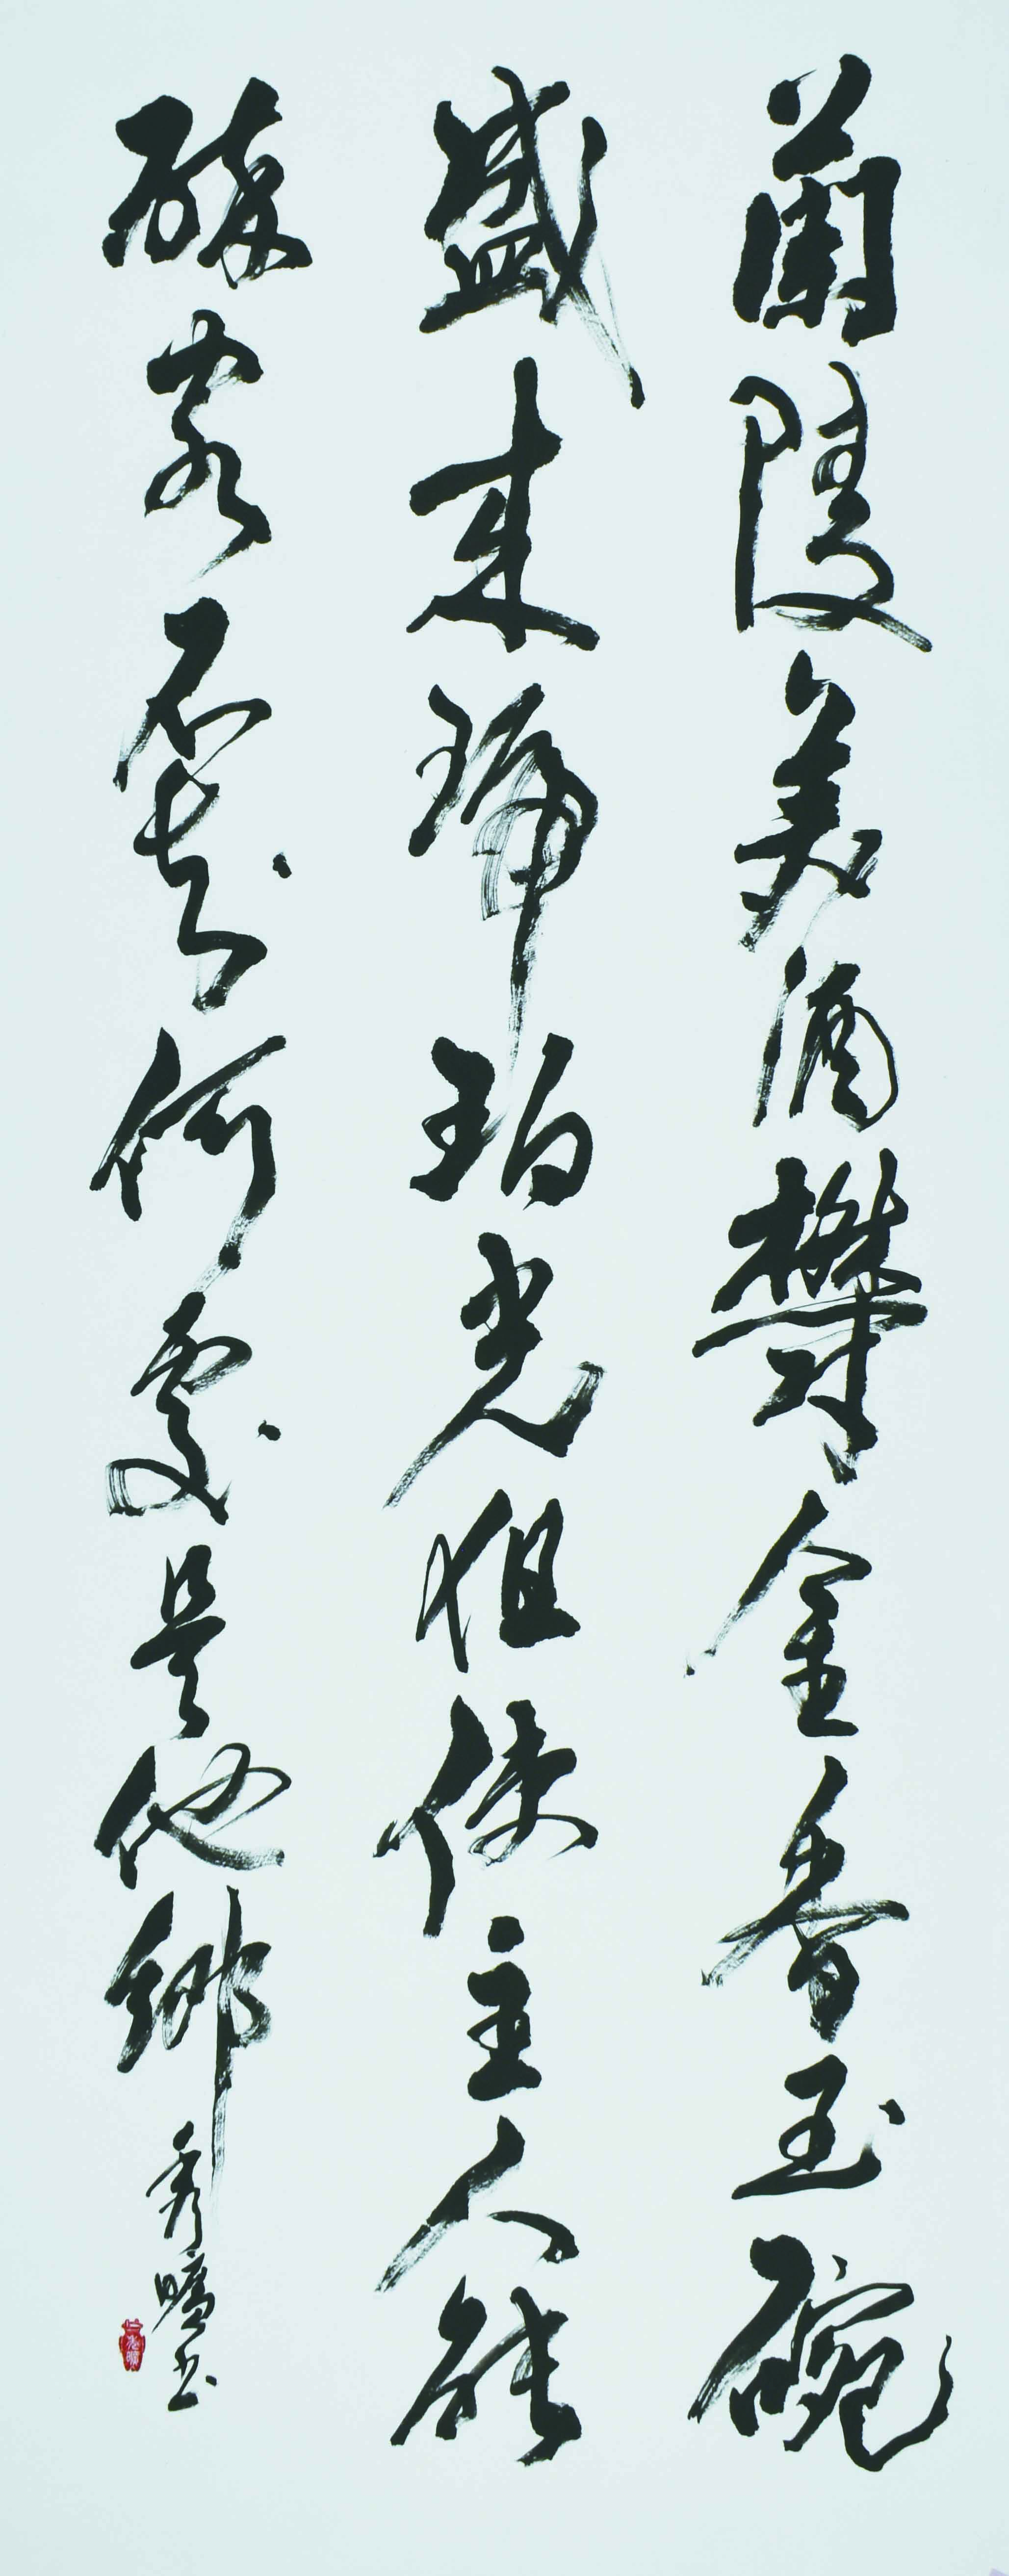 蘭陵美酒鬱金香玉碗
盛来琥珀光但使主人能
醉客不知何處是他鄉
秀曠书